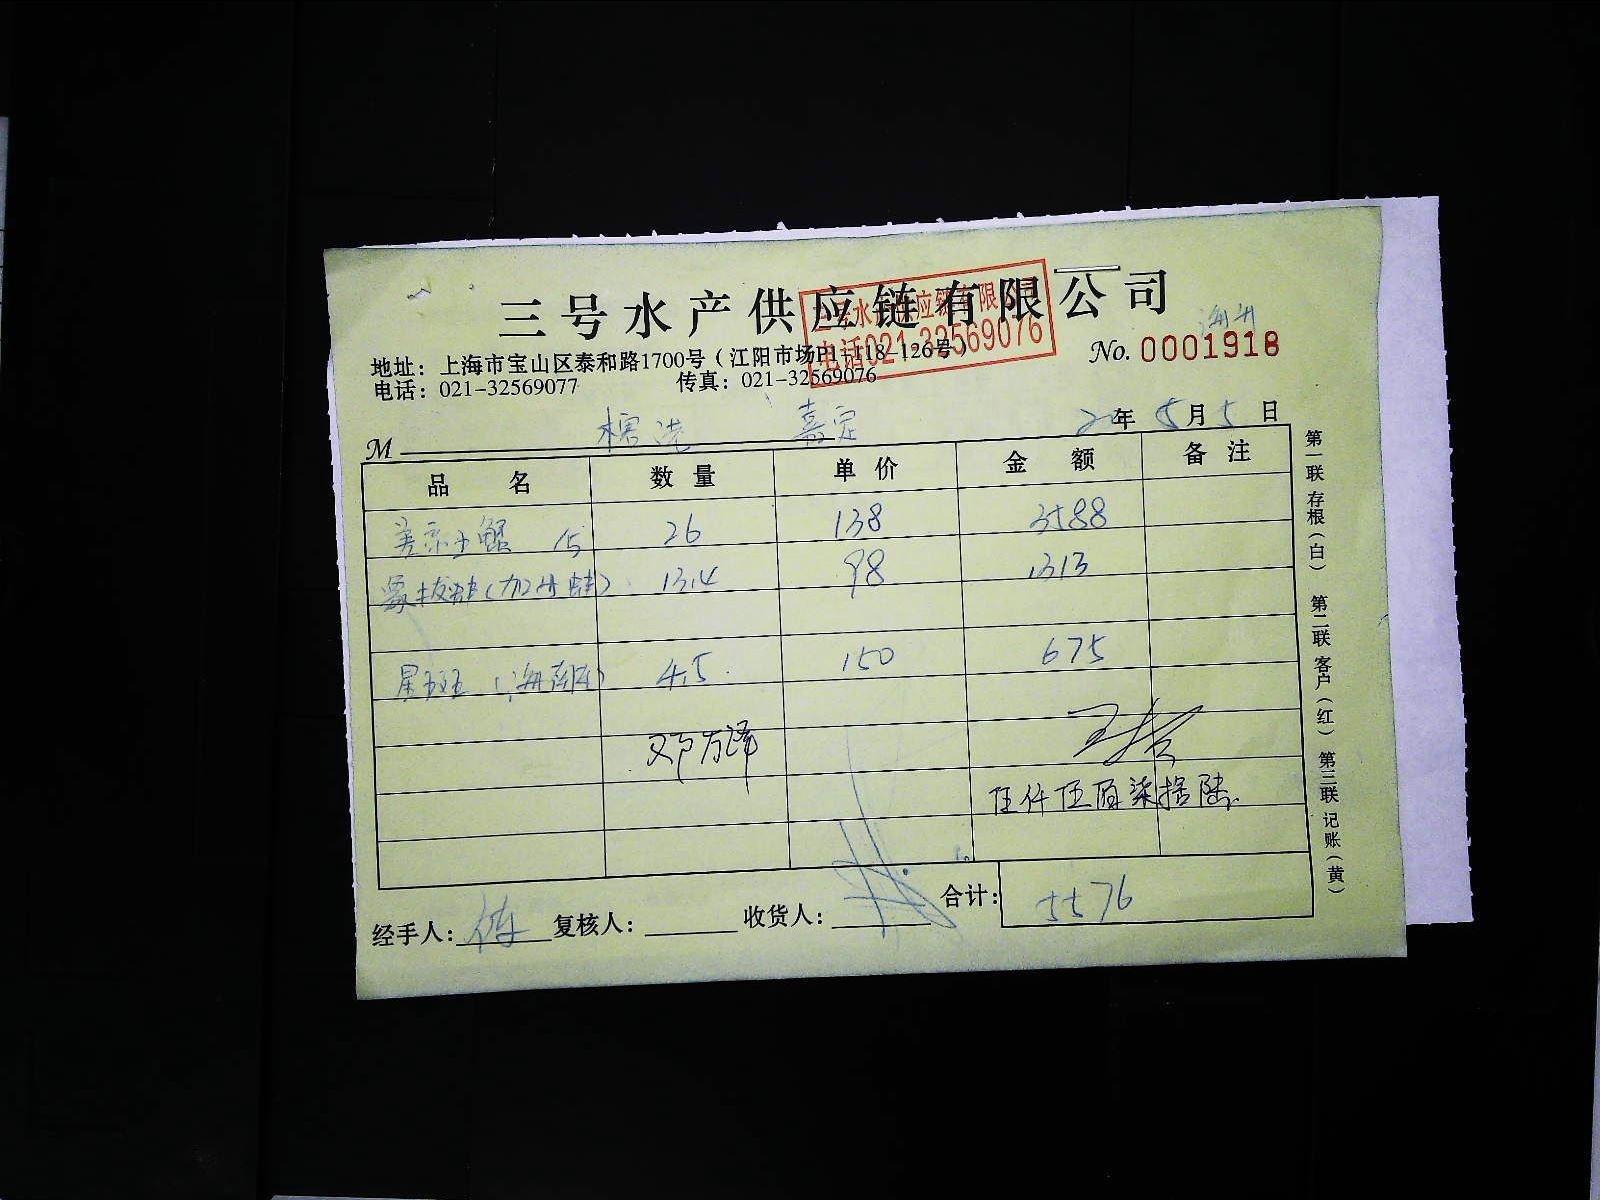 三号水产供应链有限公司
三号水产供应链有限公司
电话021-32569076
地址：上海市宝山区泰和路1700号（江阳市场P1-118-126号）
No. 0001918
电话：021-32569077 传真：021-32569076
M 嘉定 20年5月5日
品名 数量 单价 金额 备注
蟹 15 26 138 3588
象拔蚌(加州蚌) 13.4 98 1313
星斑 (海南) 4.5 150 675
邓方泽
伍仟伍百柒拾陆
经手人： 复核人： 收货人： 合计： 5576
第一联 存根（白） 第二联 客户（红） 第三联 记账（黄）